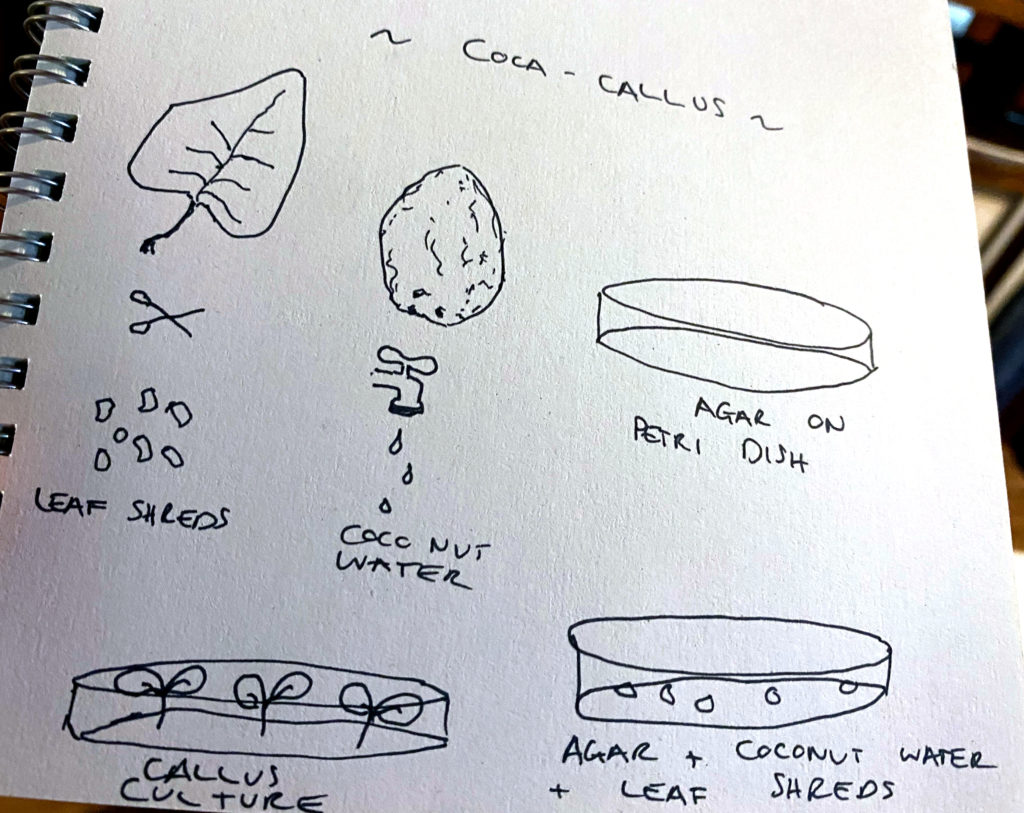 ~ COCA - CALLUS ~
AGAR ON
PETRI DISH
LEAF SHREDS
COCO NUT
WATER
CALLUS
CULTURE
AGAR + COCONUT WATER
+ LEAF SHREDS